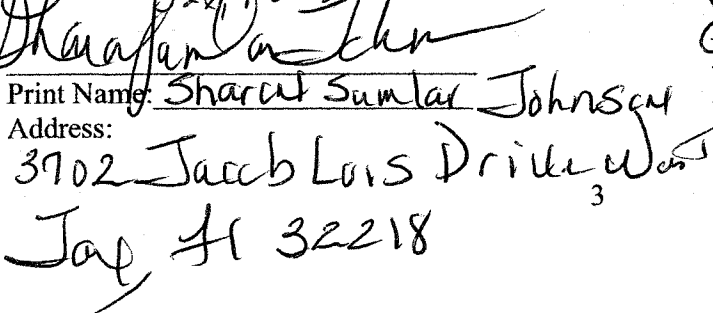 Print Name: Sharon Sumlar Johnson
Address:
3702 Jacob Lois Drive West
3
Jax, Fl 32218